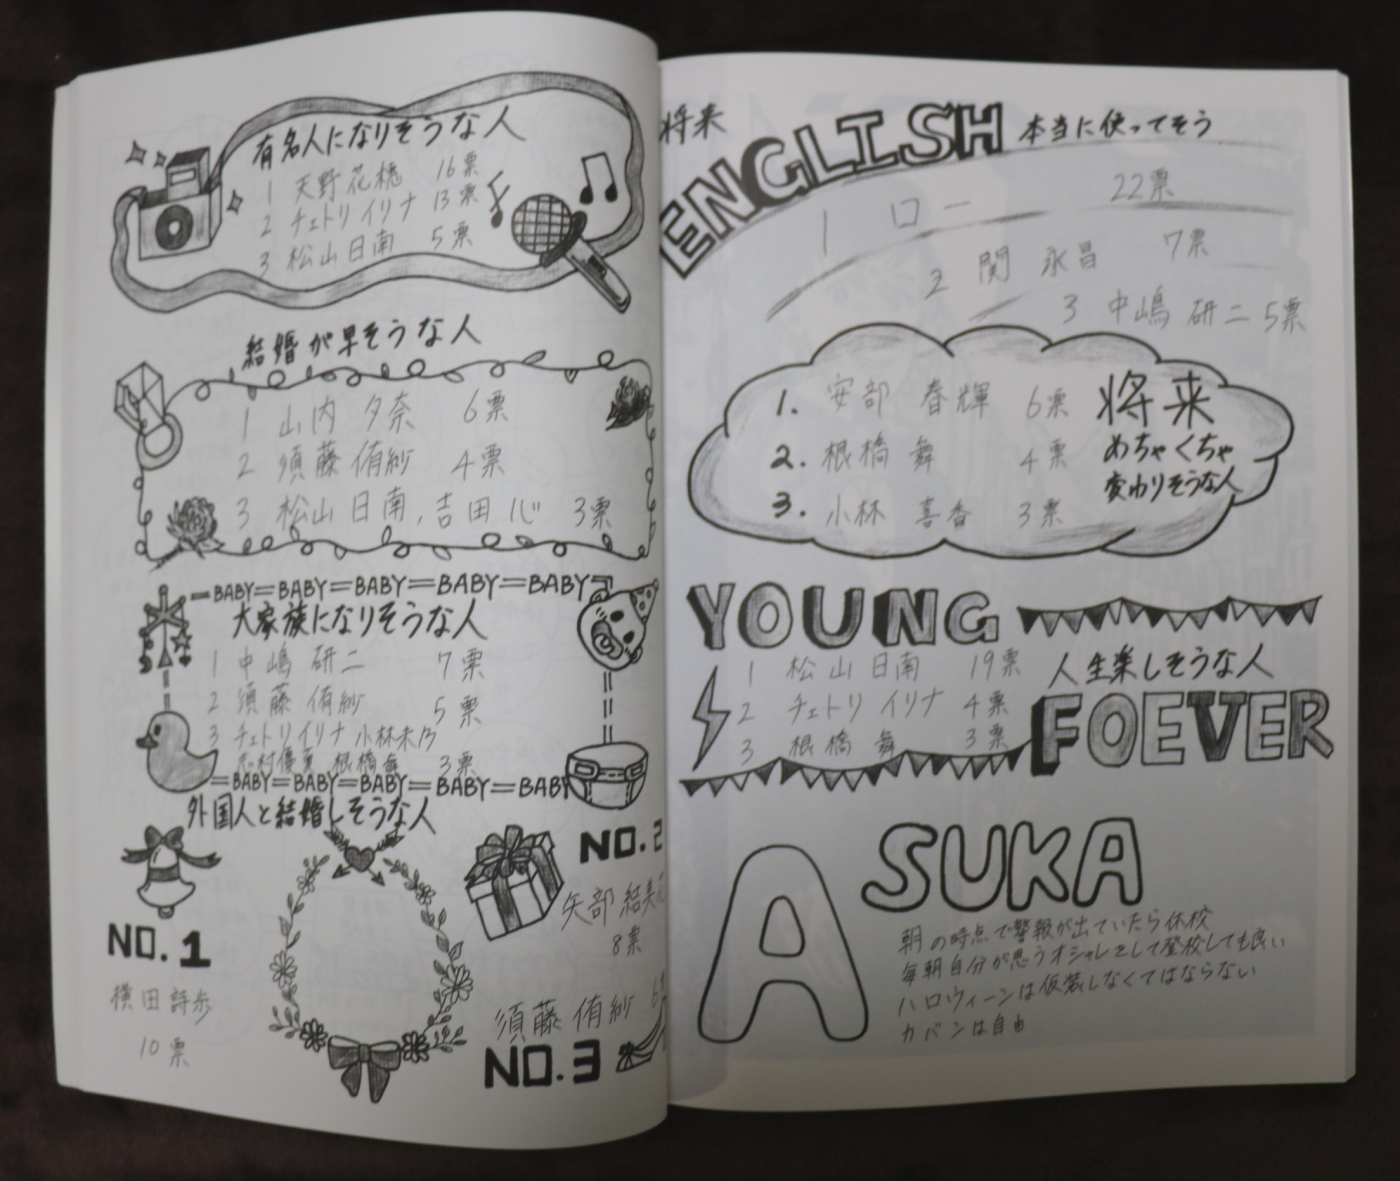 有名人になりそうな人
1 天野花穂 16票
2 チェトリ イリナ 13票
3 松山日南 5票
結婚が早そうな人
1 山内 夕奈 6票
2 須藤 侑紗 4票
3 松山日南, 吉田心 3票
BABY=BABY=BABY=BABY=BABY
大家族になりそうな人
1 中嶋 研二 7票
2 須藤 侑紗 5票
3 チェトリイリナ 小林未乃
志村優夏 根橋舞 3票
=BABY=BABY=BABY=BABY=BABY
外国人と結婚しそうな人
NO.1
横田詩歩
10票
NO.2
矢部 結美
8票
須藤 侑紗 6
NO.3
将来
ENGLISH 本当に使ってそう
1 ロー 22票
2 関 永昌 7票
3 中嶋 研二 5票
将来
めちゃくちゃ
変わりそうな人
1. 安部 春輝 6票
2. 根橋 舞 4票
3. 小林 喜香 3票
YOUNG
人生楽しそうな人
1 松山日南 19票
2 チェトリ イリナ 4票
3 根橋 舞 3票
FOEVER
ASUKA
朝の時点で警報が出ていたら休校
毎朝自分が思うオシャレをして登校しても良い
ハロウィーンは仮装しなくてはならない
カバンは自由